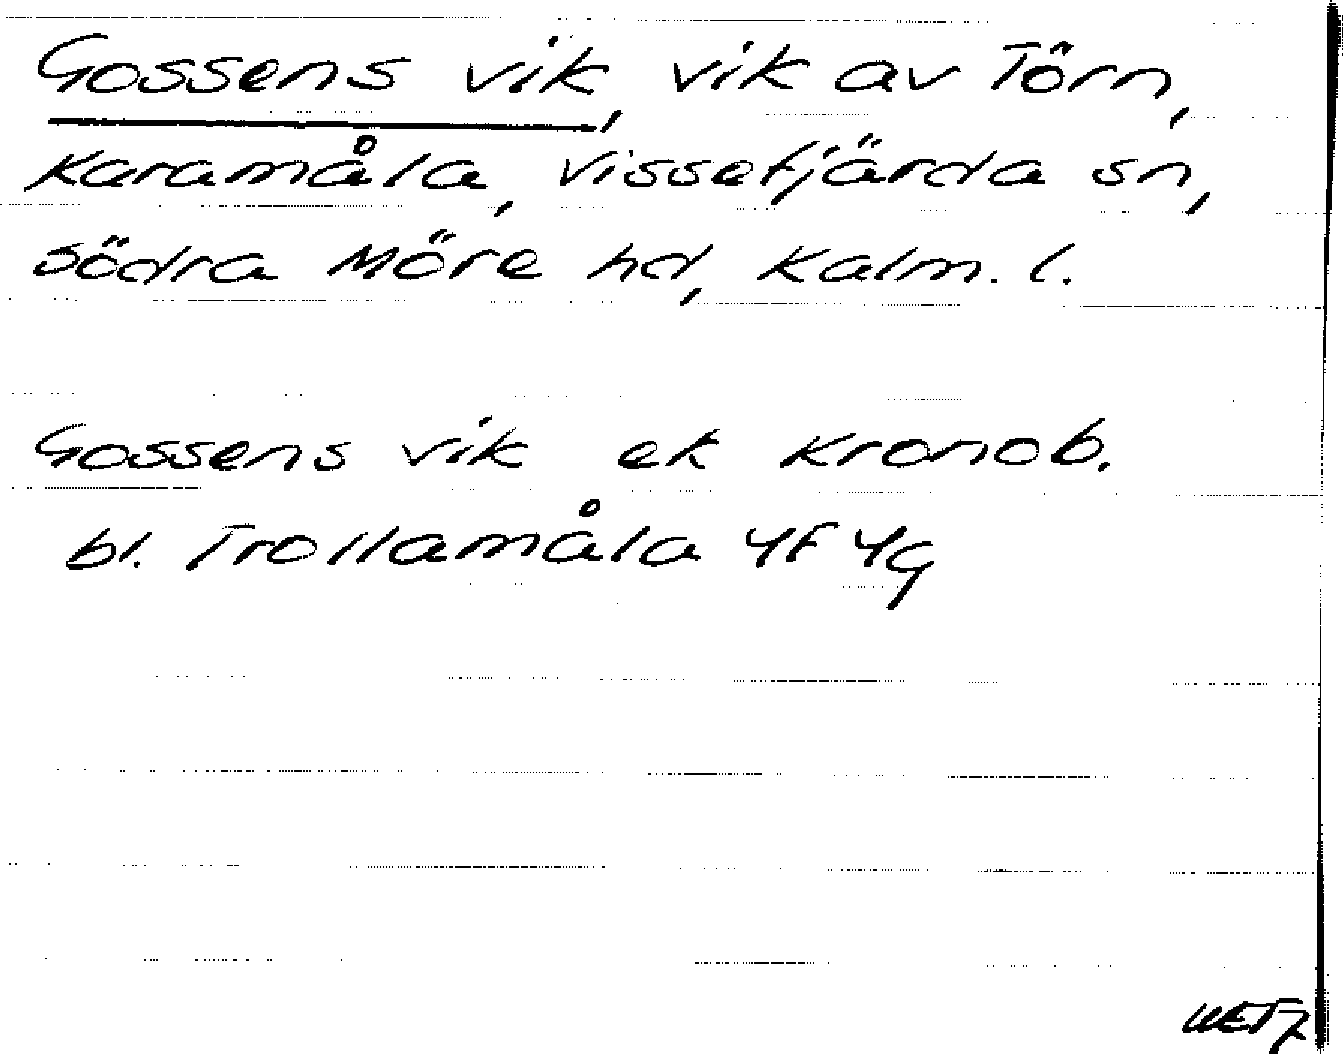 Gossens vik, vik av Törn,
Karamåla, Vissefjärda sn,
Södra Möre hd, Kalm. l.
Gossens vik ek Kronob.
bl. Trollamåla 4F 4g